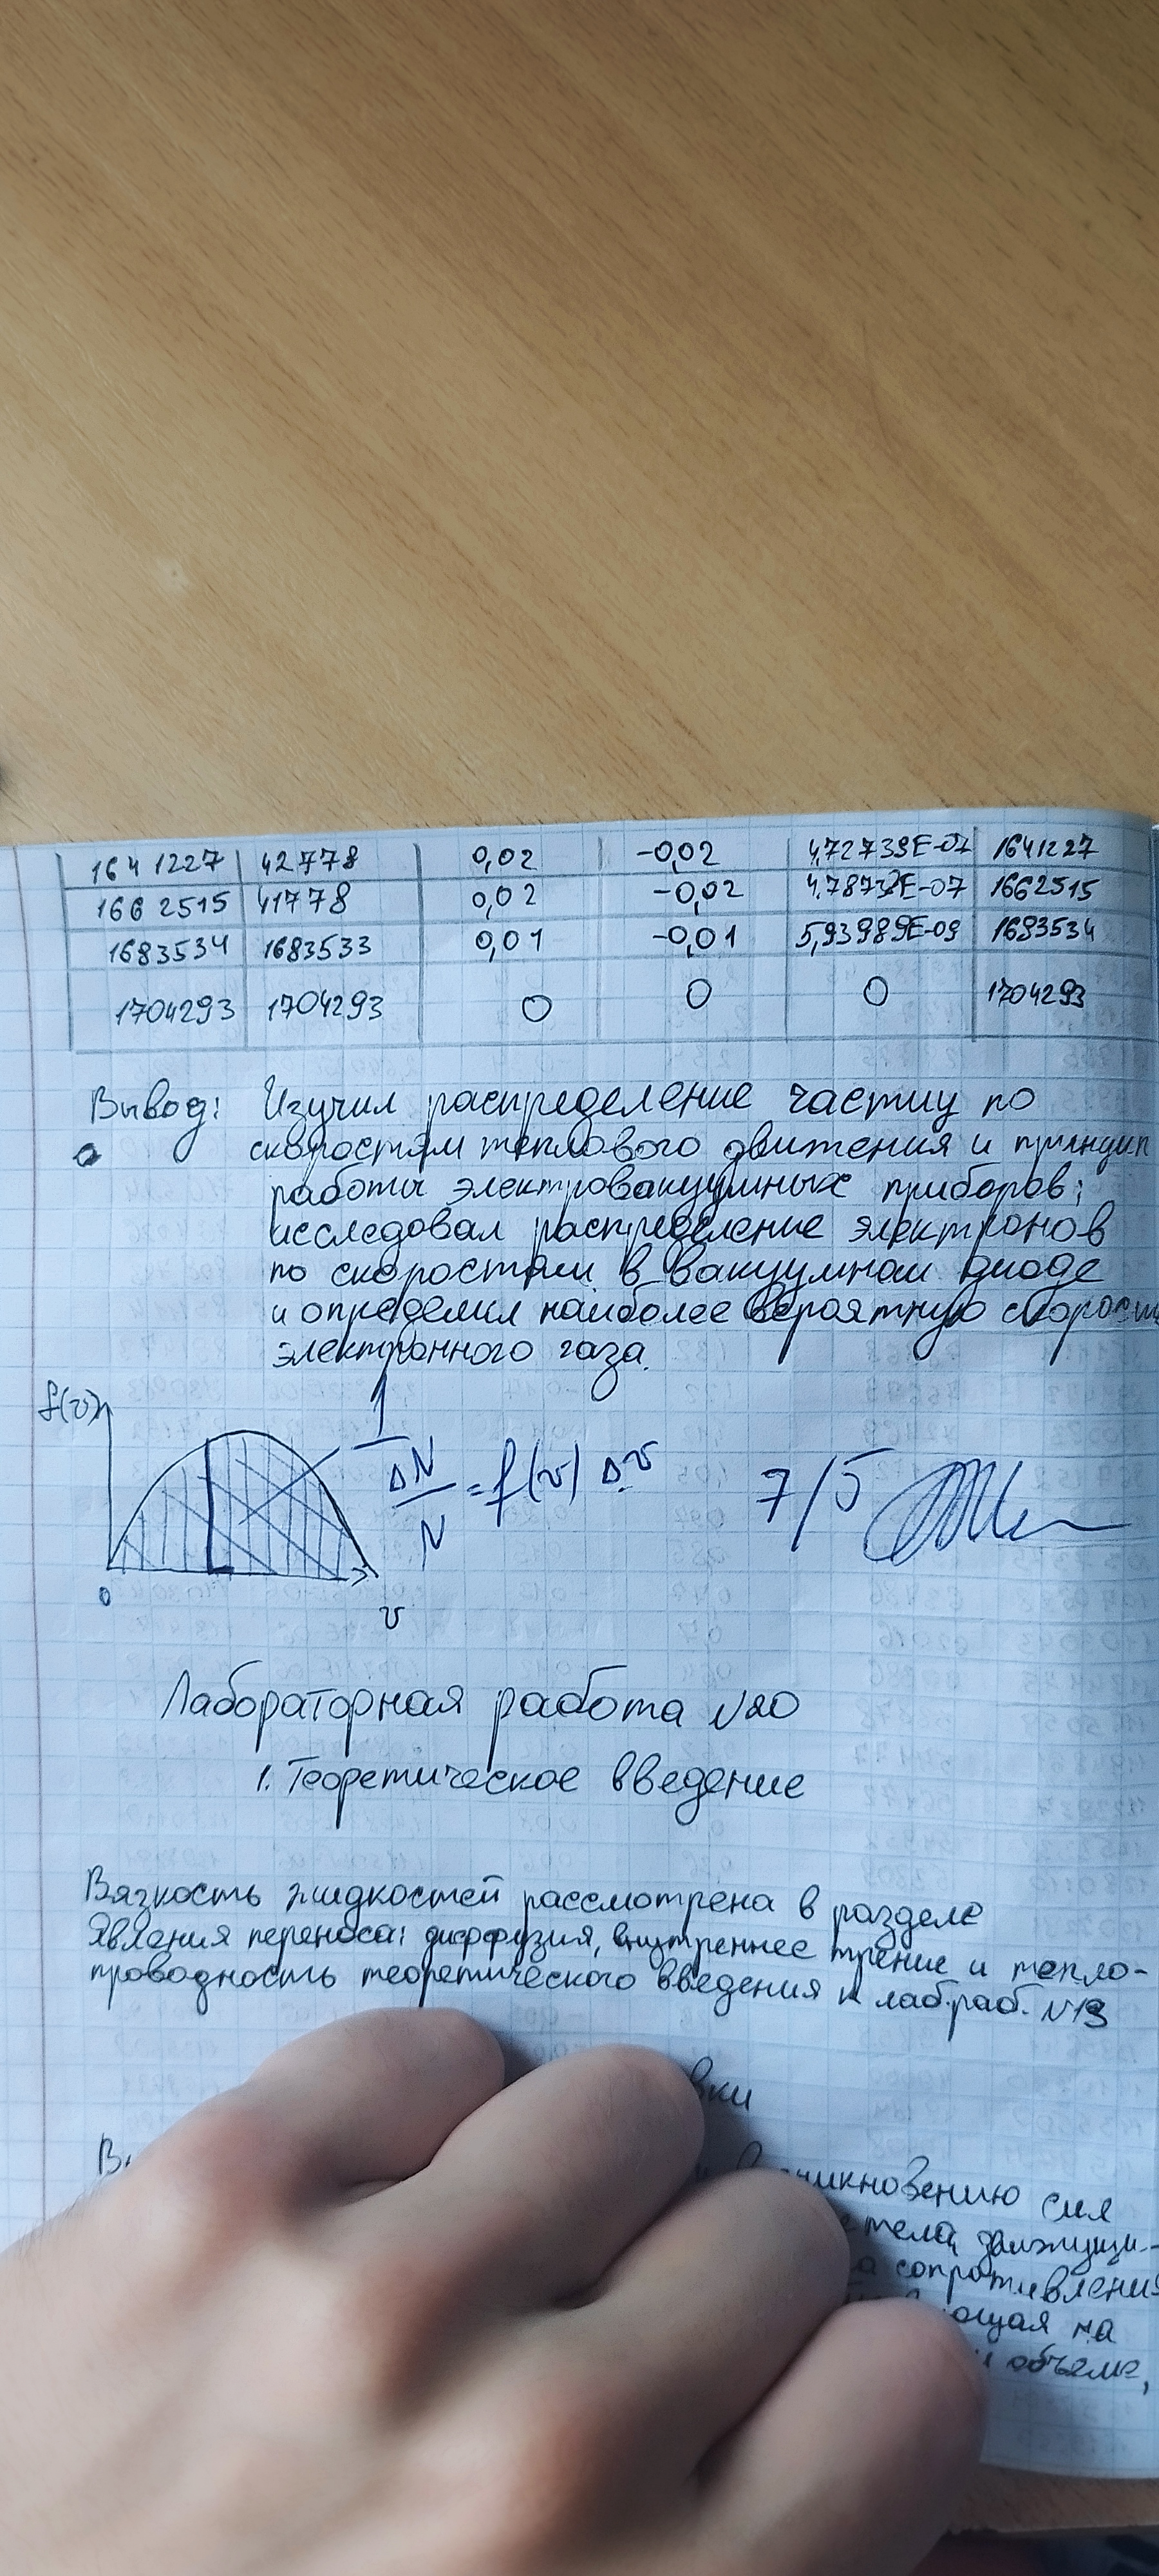 1641227 42778 0,02 -0,02 4,72739E-07 1641227
1662515 41778 0,02 -0,02 1662515
1683534 1683533 0,01 -0,01 5,93989E-09 1683534
1704293 1704293 0 0 0 1704293
Вывод: Изучил распределение частиц по
скоростям теплового движения и принцип
работы электровакуумных приборов;
исследовал распределение электронов
по скоростям в вакуумном диоде
и определил наиболее вероятную скорость
электронного газа.
f(v)
1
ΔN/N = f(v) Δv
7/5
0
v
Лабораторная работа №20
1. Теоретическое введение
Вязкость жидкостей рассмотрена в разделе
Явления переноса: диффузия, внутреннее трение и тепло-
проводность теоретического введения к лаб.раб. №19
сил
тела, движущи-
сопротивления
на
объеме,